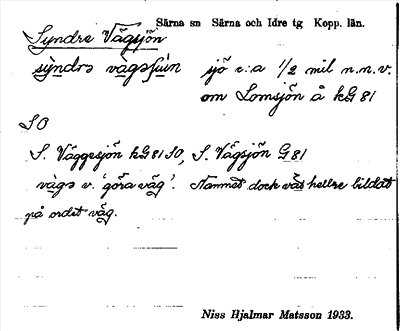 Särna sn Särna och Idre tg Kopp. län.
Syndre Vägsjön
sỳndrə vàgəʃuìn sjö c:a 1/2 mil n.n.v.
om Lomsjön å kG 81
SO
S. Väggesjön kG 81 SO, S. Vägsjön G 81
vàgə v. 'göra väg'. Namnet dock väl hellre bildat
på ordet väg.
Niss Hjalmar Matsson 1933.